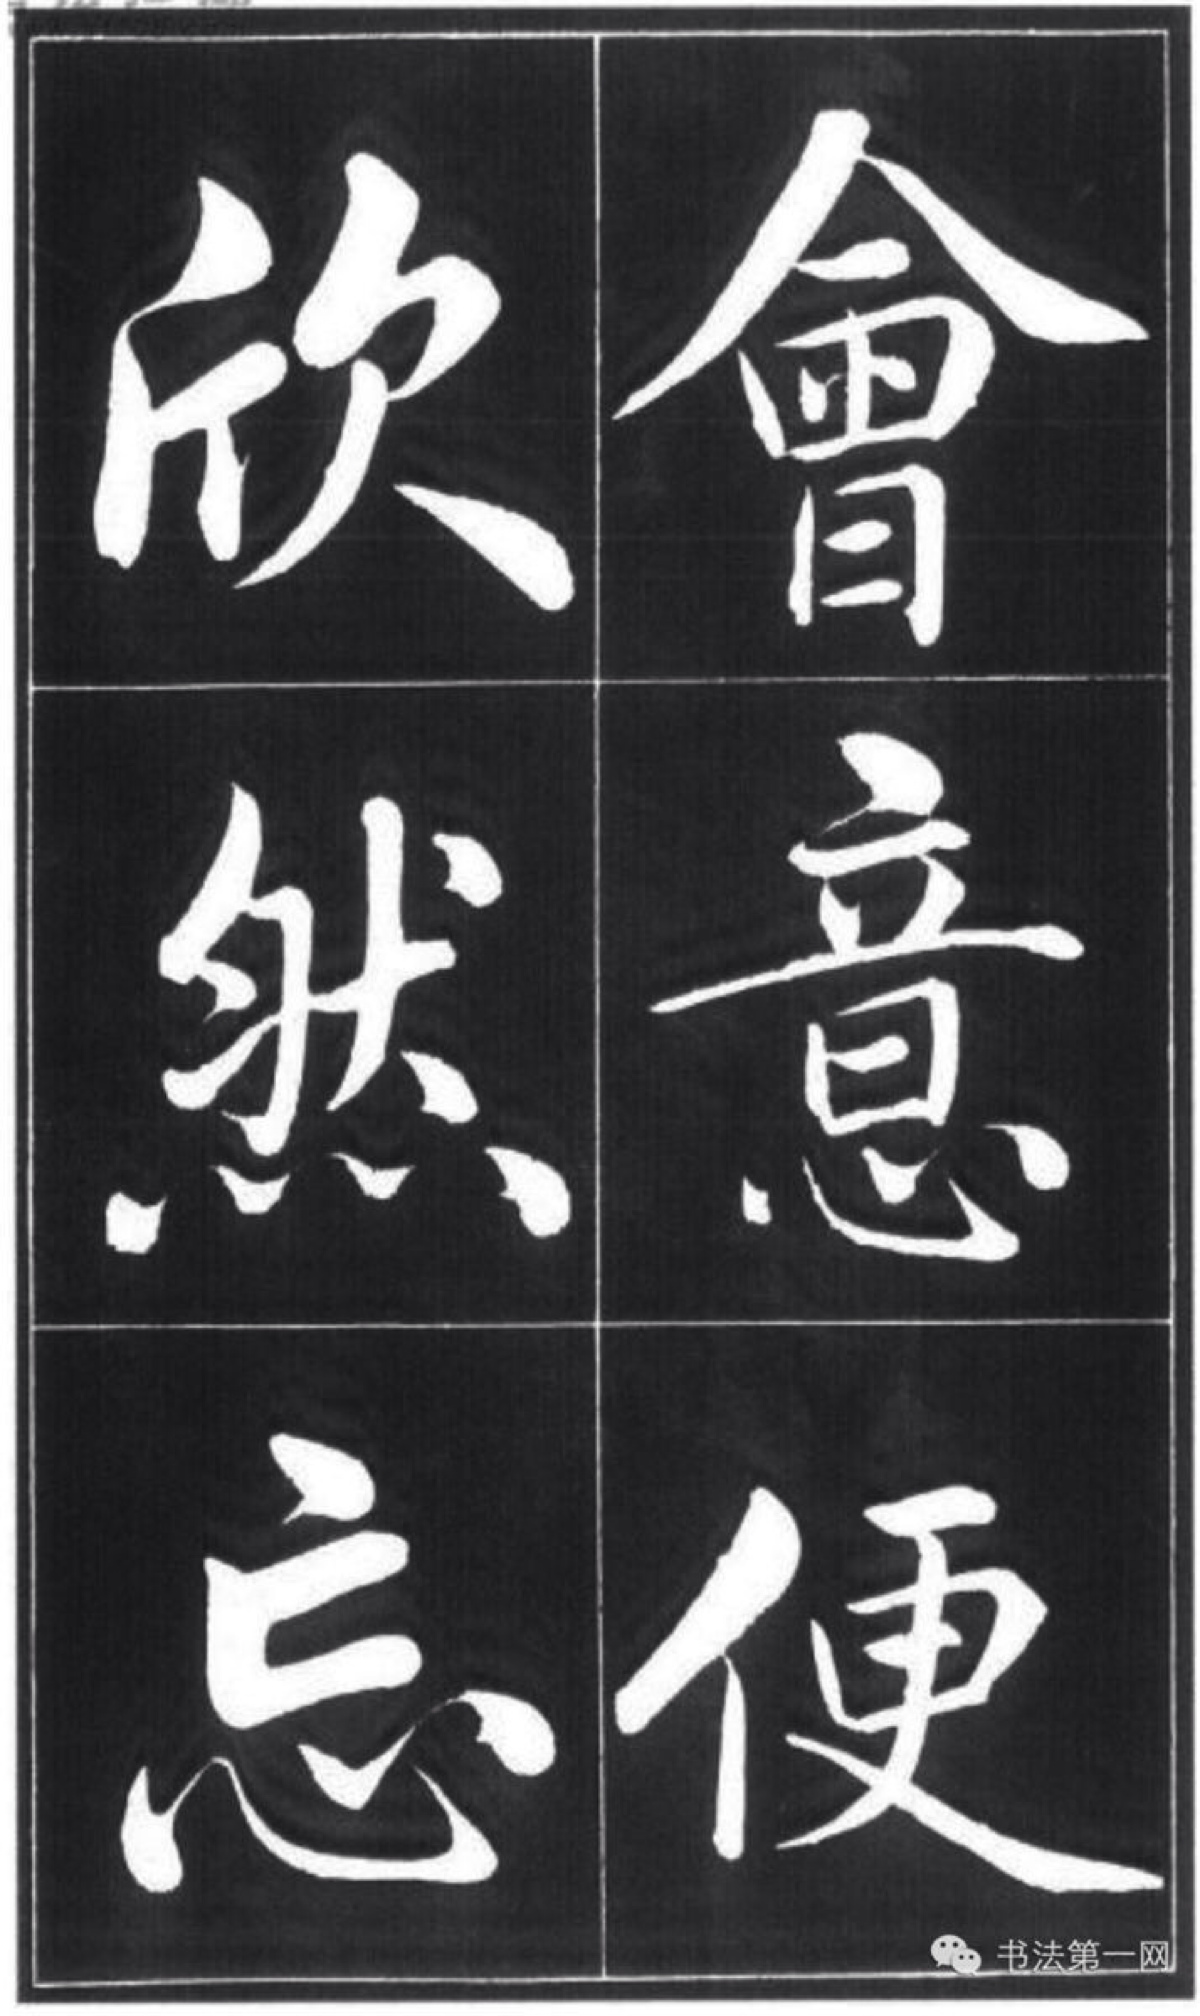 會意便
欣然忘
书法第一网